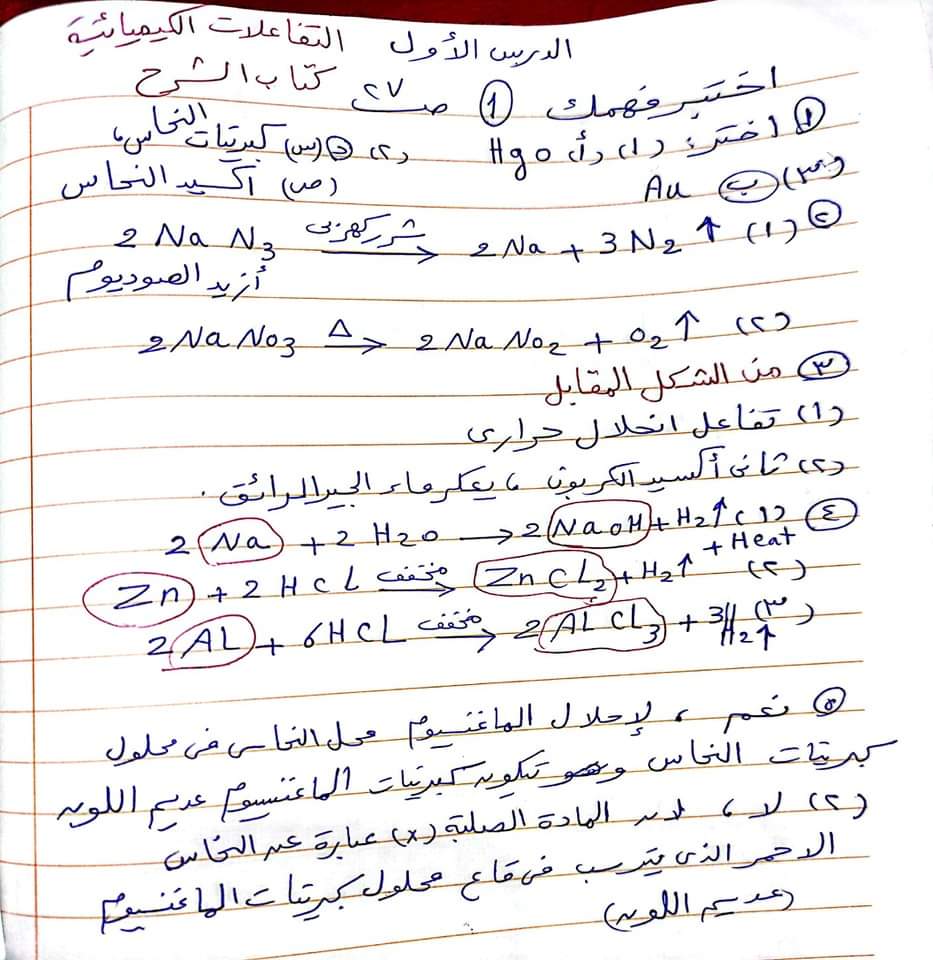 الدرس الأول التفاعلات الكيميائية
اختبر فهمك (1) صـ ٢٧ كتاب الشرح
(١) اختر: (١) (أ) HgO (٢) (د) (س) كبريتات النحاس،
(ص) أكسيد النحاس
(٣) (ب) Au
(٢) (١) 2 Na N3 شرر كهربى → 2 Na + 3 N2 ↑
أزيد الصوديوم
(٢) 2 Na NO3 Δ → 2 Na NO2 + O2 ↑
(٣) من الشكل المقابل
(١) تفاعل انحلال حرارى
(٢) ثانى أكسيد الكربون ، يعكر ماء الجير الرائق .
(٤) (١) 2 Na + 2 H2O → 2 NaOH + H2 ↑ + Heat
(٢) Zn + 2 HCL مخفف → Zn CL2 + H2 ↑
(٣) 2 AL + 6HCL مخفف → 2 AL CL3 + 3H2 ↑
(٥) نعم ، لإحلال الماغنسيوم محل النحاس فى محلول
كبريتات النحاس وتكوين كبريتات الماغنسيوم عديم اللون
(٢) لا ، لأن المادة الصلبة (x) عبارة عن النحاس
الاحمر الذى يترسب فى قاع محلول كبريتات الماغنسيوم
(عديم اللون)